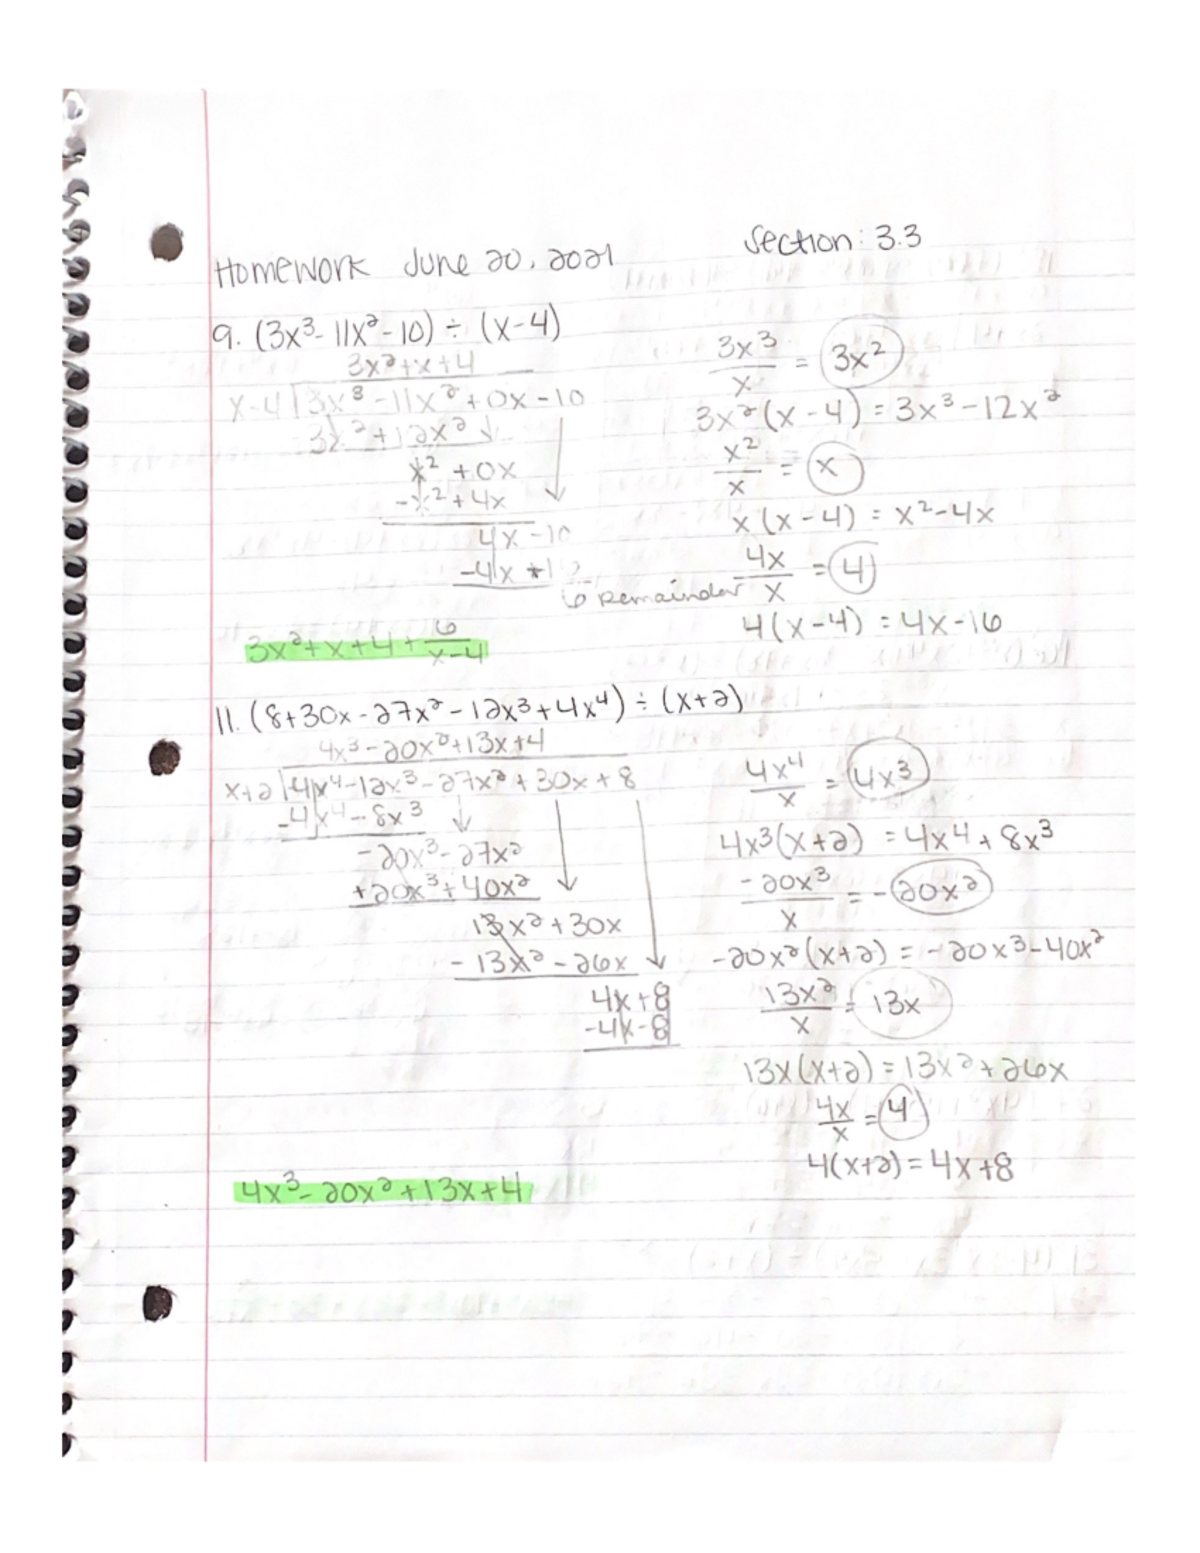 Homework June 20, 2021 Section: 3.3
9. (3x³ - 11x² - 10) ÷ (x - 4)
3x² + x + 4
x - 4 | 3x³ - 11x² + 0x - 10
3x² + 12x²
x² + 0x
- x² + 4x
4x - 10
- 4x + 1
6 Remainder
3x² + x + 4 + 6/(x - 4)
3x³/x = 3x²
3x²(x - 4) = 3x³ - 12x²
x²/x = x
x(x - 4) = x² - 4x
4x/x = 4
4(x - 4) = 4x - 16
11. (8 + 30x - 27x² - 12x³ + 4x⁴) ÷ (x + 2)
4x³ - 20x² + 13x + 4
x + 2 | 4x⁴ - 12x³ - 27x² + 30x + 8
- 4x⁴ - 8x³
- 20x³ - 27x²
+ 20x³ + 40x²
13x² + 30x
- 13x² - 26x
4x + 8
- 4x - 8
4x³ - 20x² + 13x + 4
4x⁴/x = 4x³
4x³(x + 2) = 4x⁴ + 8x³
- 20x³/x = - 20x²
- 20x²(x + 2) = - 20x³ - 40x²
13x²/x = 13x
13x(x + 2) = 13x² + 26x
4x/x = 4
4(x + 2) = 4x + 8